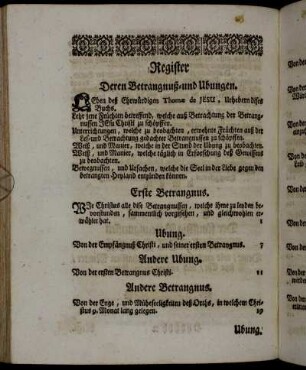 Register
Deren Betrangnuß- und Ubungen.
LEben deß Ehrwürdigen Thomæ de JESU, Urhebern dises
Buchs.
Lehr jene Früchten betreffend, welche auß Betrachtung der Betrang-
nussen JEsu Christi zu schöpffen.
Unterrichtungen, welche zu beobachten, erwehnte Früchten auß der
Les- und Betrachtung gedachter Betrangnussen zu schöpffen.
Weiß, und Manier, welche in der Stund der Ubung zu beobachten.
Weiß, und Manier, welche täglich in Erforschung deß Gewissens
zu beobachten.
Bewegnussen, und Ursachen, welche die Seel in der Liebe gegen den
betrangten Heyland entzünden können.
Erste Betrangnus.
WIe Christus alle dise Betrangnussen, welche Ihme zu leyden be-
vorstunden, sammentlich vorgesehen, und gleichwohlen er-
wählet hat. 1
Ubung.
Von der Empfängnuß Christi, und seiner ersten Betrangnus. 7
Andere Ubung.
Von der ersten Betrangnus Christi. 11
Andere Betrangnus.
Von der Enge, und Mühseeligkeiten deß Orths, in welchem Chri-
stus 9. Monat lang gelegen. 19
Ubung.
Von der
Von der
Von den
Von den